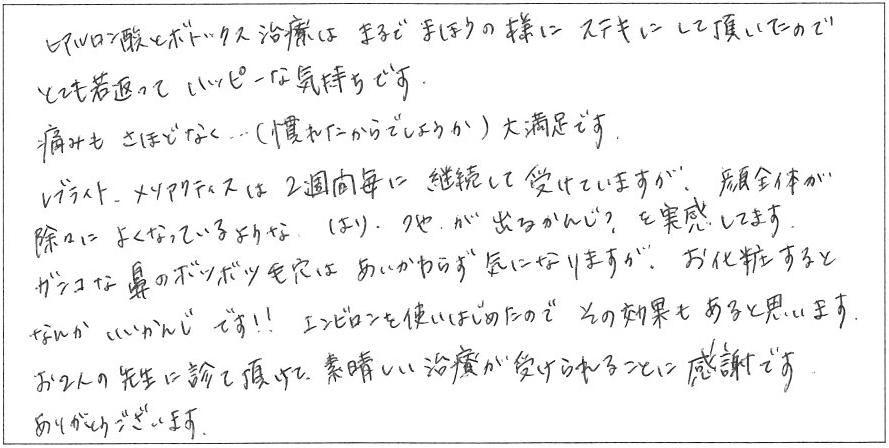 ヒアルロン酸とボトックス治療は まるで まほうの様に ステキにして頂いたので
とても若返って ハッピーな気持ちです.
痛みも さほどなく…(慣れたからでしょうか) 大満足です.
レブライト、メソアクティスは 2週間毎に 継続して 受けていますが、顔全体が
除々に よくなっているような. はり. ツヤ. が 出るかんじ?を実感してます.
ガンコな 鼻のボツボツ毛穴は あいかわらず 気になりますが、お化粧すると
なんか いいかんじ です!! エンビロンを使いはじめたので その効果も あると思います.
お2人の 先生に 診て頂けて、素晴しい 治療が受けられることに 感謝です
ありがとうございます.